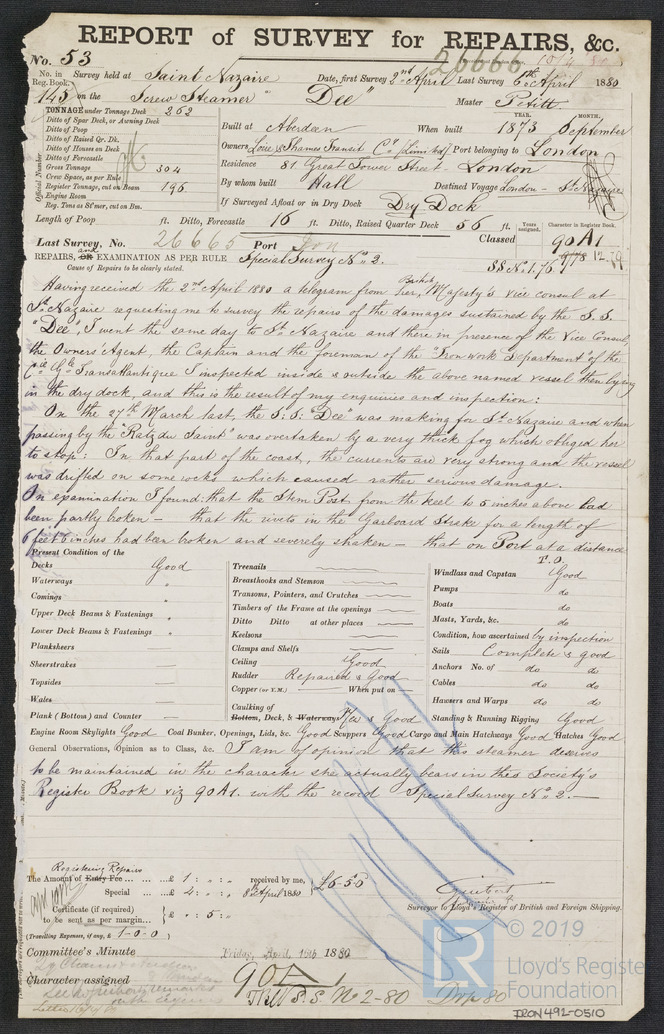 REPORT of SURVEY for REPAIRS, &c.
No. 53 26666
No. in Reg. Book. Survey held at Saint Nazaire Date, first Survey 2nd April Last Survey 6th April 1880
145 on the Screw Steamer "Dee" Master Petitt
TONNAGE under Tonnage Deck 262
Ditto of Spar Deck, or Awning Deck
Ditto of Poop
Ditto of Raised Qr. Dk.
Ditto of Houses on Deck
Ditto of Forecastle
Gross Tonnage 304
Crew Space, as per Rule
Register Tonnage, cut on Beam 196
Engine Room
Reg. Tons as St'mer, cut on Bm.
Official Number
Built at Aberdeen When built YEAR. 1873 MONTH. September
Owners Loire & Thames Transit Co (Limited) Port belonging to London
Residence 81 Great Tower Street. London
By whom built Hall Destined Voyage London - St Nazaire
If Surveyed Afloat or in Dry Dock Dry Dock
Length of Poop ft. Ditto, Forecastle 16 ft. Ditto, Raised Quarter Deck 56 ft. Years assigned. Character in Register Book.
Last Survey, No. 26665 Port Iron Classed 90A1
REPAIRS, and OR EXAMINATION AS PER RULE Special Survey No 2. SS No. 1. 76
Cause of Repairs to be clearly stated.
Having received the 2nd April 1880 a telegram from Her British Majesty's vice consul at
St Nazaire requesting me to survey the repairs of the damages sustained by the S.S.
"Dee", I went the same day to St Nazaire and there in presence of the Vice Consul,
the Owners' Agent, the Captain and the foreman of the Iron work Department of the
Cie Gle Transatlantique I inspected inside & outside the above named vessel then lying
in the dry dock, and this is the result of my enquiries and inspection:
On the 27th March last, the S.S. "Dee" was making for St Nazaire and when
passing by the "Ratz du Saint" was overtaken by a very thick fog which obliged her
to stop: In that part of the coast, the currents are very strong and the vessel
was drifted on some rocks which caused rather serious damage.
On examination I found: that the Stem Post from the keel to 5 inches above had
been partly broken - that the rivets in the Garboard Strake for a length of
6 feet 3 inches had been broken and severely shaken - that on Port at a distance
T.O.
Present Condition of the
Decks Good
Waterways "
Comings "
Upper Deck Beams & Fastenings "
Lower Deck Beams & Fastenings "
Planksheers
Sheerstrakes
Topsides
Wales
Plank (Bottom) and Counter
Treenails
Breasthooks and Stemson
Transoms, Pointers, and Crutches
Timbers of the Frame at the openings
Ditto Ditto at other places
Keelsons
Clamps and Shelfs
Ceiling Good
Rudder Repaired & Good
Copper (or Y.M.) When put on
Caulking of Bottom, Deck, & Waterways New & Good
Windlass and Capstan Good
Pumps do
Boats do
Masts, Yards, &c. do
Condition, how ascertained by inspection
Sails Complete & good
Anchors No. of do do
Cables do do
Hawsers and Warps do do
Standing & Running Rigging Good
Engine Room Skylights Good Coal Bunker, Openings, Lids, &c. Good Scuppers Good Cargo and Main Hatchways Good Hatches Good
General Observations, Opinion as to Class, &c. I am of opinion that this steamer deserves
to be maintained in the character she actually bears in this Society's
Register Book viz 90A1. with the record Special Survey No 2.—
Registering Repairs
The Amount of Entry Fee ... £ 1 : " : " received by me,
Special ... £ 4 : " : " April 1880 £6-5-0
Certificate (if required) to be sent as per margin... £ " : 5 : "
(Travelling Expenses, if any, £ 1-0-0)
Guibert
Surveyor to Lloyd's Register of British and Foreign Shipping.
Committee's Minute Friday, April 16th 1880
Character assigned 90A1
S.S No 2-80
© 2019
LR
Lloyd's Register
Foundation
IRON492-0510